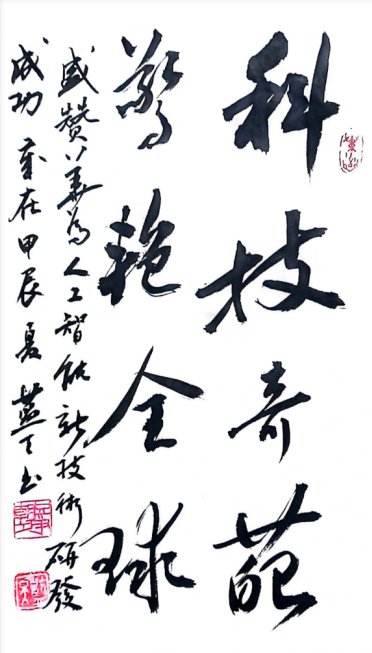 科技奇葩
驚艷全球
盛赞华為人工智能新技術研發
成功 歲在甲辰夏 书